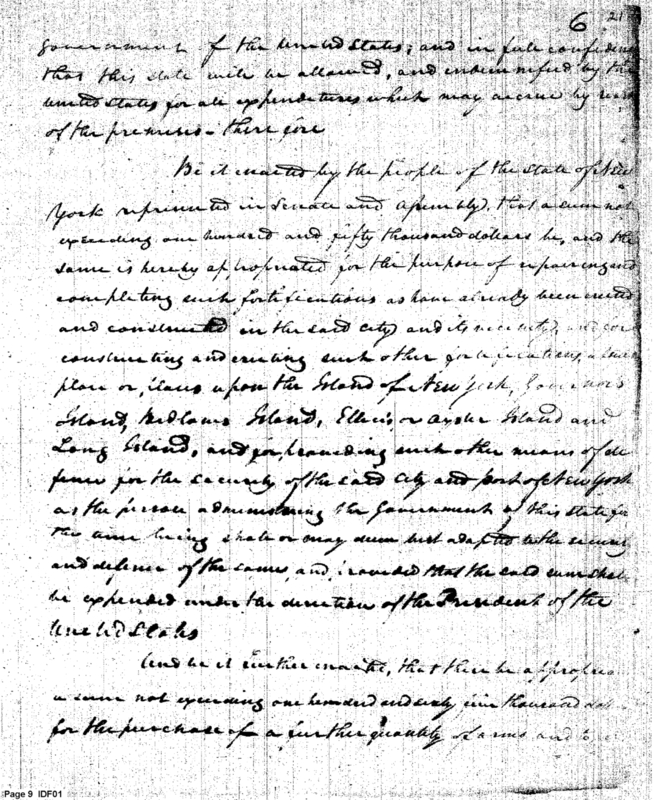 6 21
government of the United States; and in full confidence
that this state will be allowed, and indemnified by the
United States for all expenditures which may accrue by
of the premises - therefore
Be it enacted by the people of the State of New
York represented in Senate and Assembly, that a sum not
exceeding one hundred and fifty thousand dollars be, and the
same is hereby appropriated for the purpose of repairing and
completing such fortifications as have already been erected
and constructed in the said City and its vicinity, and for
constructing and erecting such other fortifications, at such
place or places upon the Island of New York, Governors
Island, Bedlows Island, Ellis, or Oyster Island and
Long Island, and for providing such other means of de
fence for the security of the said City and port of New York
as the person administering the Government of this State for
the time being shall or may deem best adapted to the security
and defence of the same, and provided that the said sum shall
be expended under the direction of the President of the
United States
And be it further enacted, that there be
a sum not exceeding one hundred and sixty five thousand
for the purchase of a further quantity of arms and
Page 9 IDF01